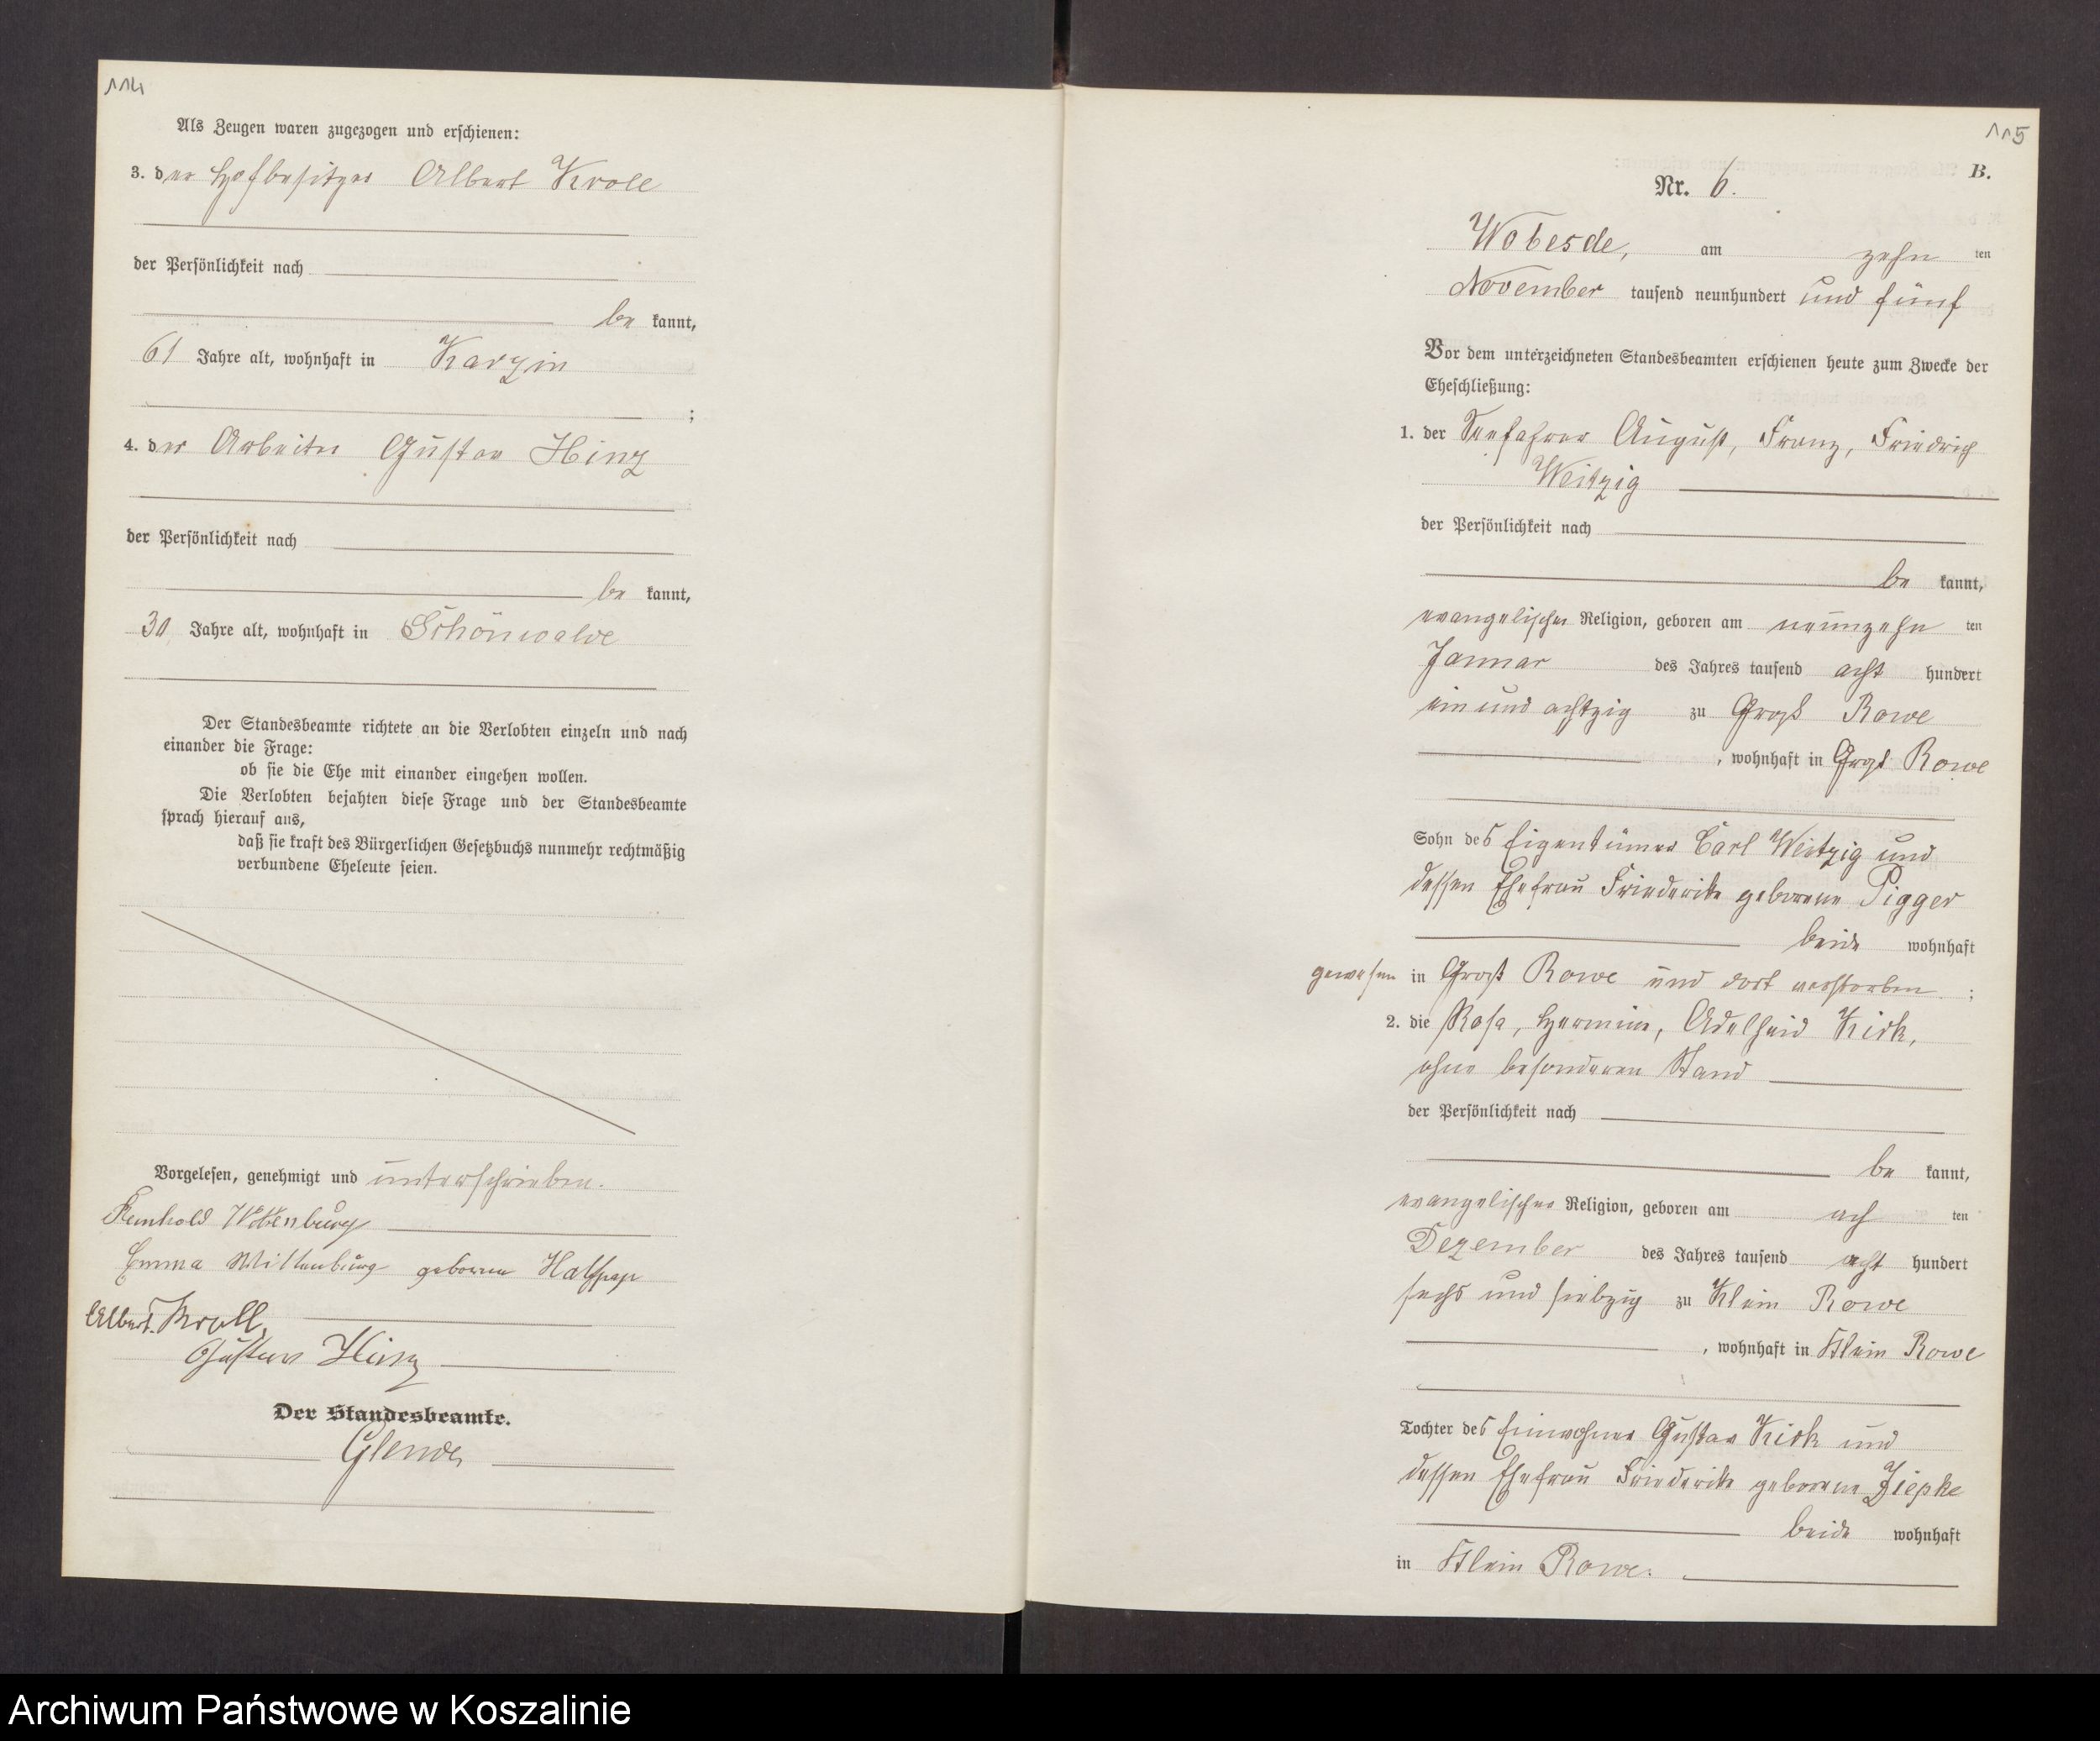 114
Als Zeugen waren zugezogen und erschienen:
3. der Hofbesitzer Albert Kroll
der Persönlichkeit nach
be kannt,
61 Jahre alt, wohnhaft in Karzin
;
4. der Arbeiter Gustav Hinz
der Persönlichkeit nach
be kannt,
30 Jahre alt, wohnhaft in Schönwalde
Der Standesbeamte richtete an die Verlobten einzeln und nach
einander die Frage:
ob sie die Ehe mit einander eingehen wollen.
Die Verlobten bejahten diese Frage und der Standesbeamte
sprach hierauf aus,
daß sie kraft des Bürgerlichen Gesetzbuchs nunmehr rechtmäßig
verbundene Eheleute seien.
Vorgelesen, genehmigt und unterschrieben.
Reinhold Wittenburg
Emma Wittenburg geborene Halfpap
Albert Kroll
Gustav Hinz
Der Standesbeamte.
115
B.
Nr. 6.
Wobesde, am zehn ten
November tausend neunhundert und fünf
Vor dem unterzeichneten Standesbeamten erschienen heute zum Zwecke der
Eheschließung:
1. der Seefahrer August, Franz, Friedrich
Weitzig
der Persönlichkeit nach
be kannt,
evangelischer Religion, geboren am neunzehn ten
Januar des Jahres tausend acht hundert
ein und achtzig zu Groß Rowe
, wohnhaft in Groß Rowe
Sohn des Eigentümer Carl Weitzig und
dessen Ehefrau Friederike geborene Pigger
beide wohnhaft
gewesen in Groß Rowe und dort verstorben ;
2. die Rosa, Hermine, Adelheid Kirk,
ohne besonderen Stand
der Persönlichkeit nach
be kannt,
evangelischer Religion, geboren am ach ten
Dezember des Jahres tausend acht hundert
sechs und siebzig zu Klein Rowe
, wohnhaft in Klein Rowe
Tochter des Einwohner Gustav Kirk und
dessen Ehefrau Friederike geborene Ziepke
beide wohnhaft
in Klein Rowe.
Archiwum Państwowe w Koszalinie